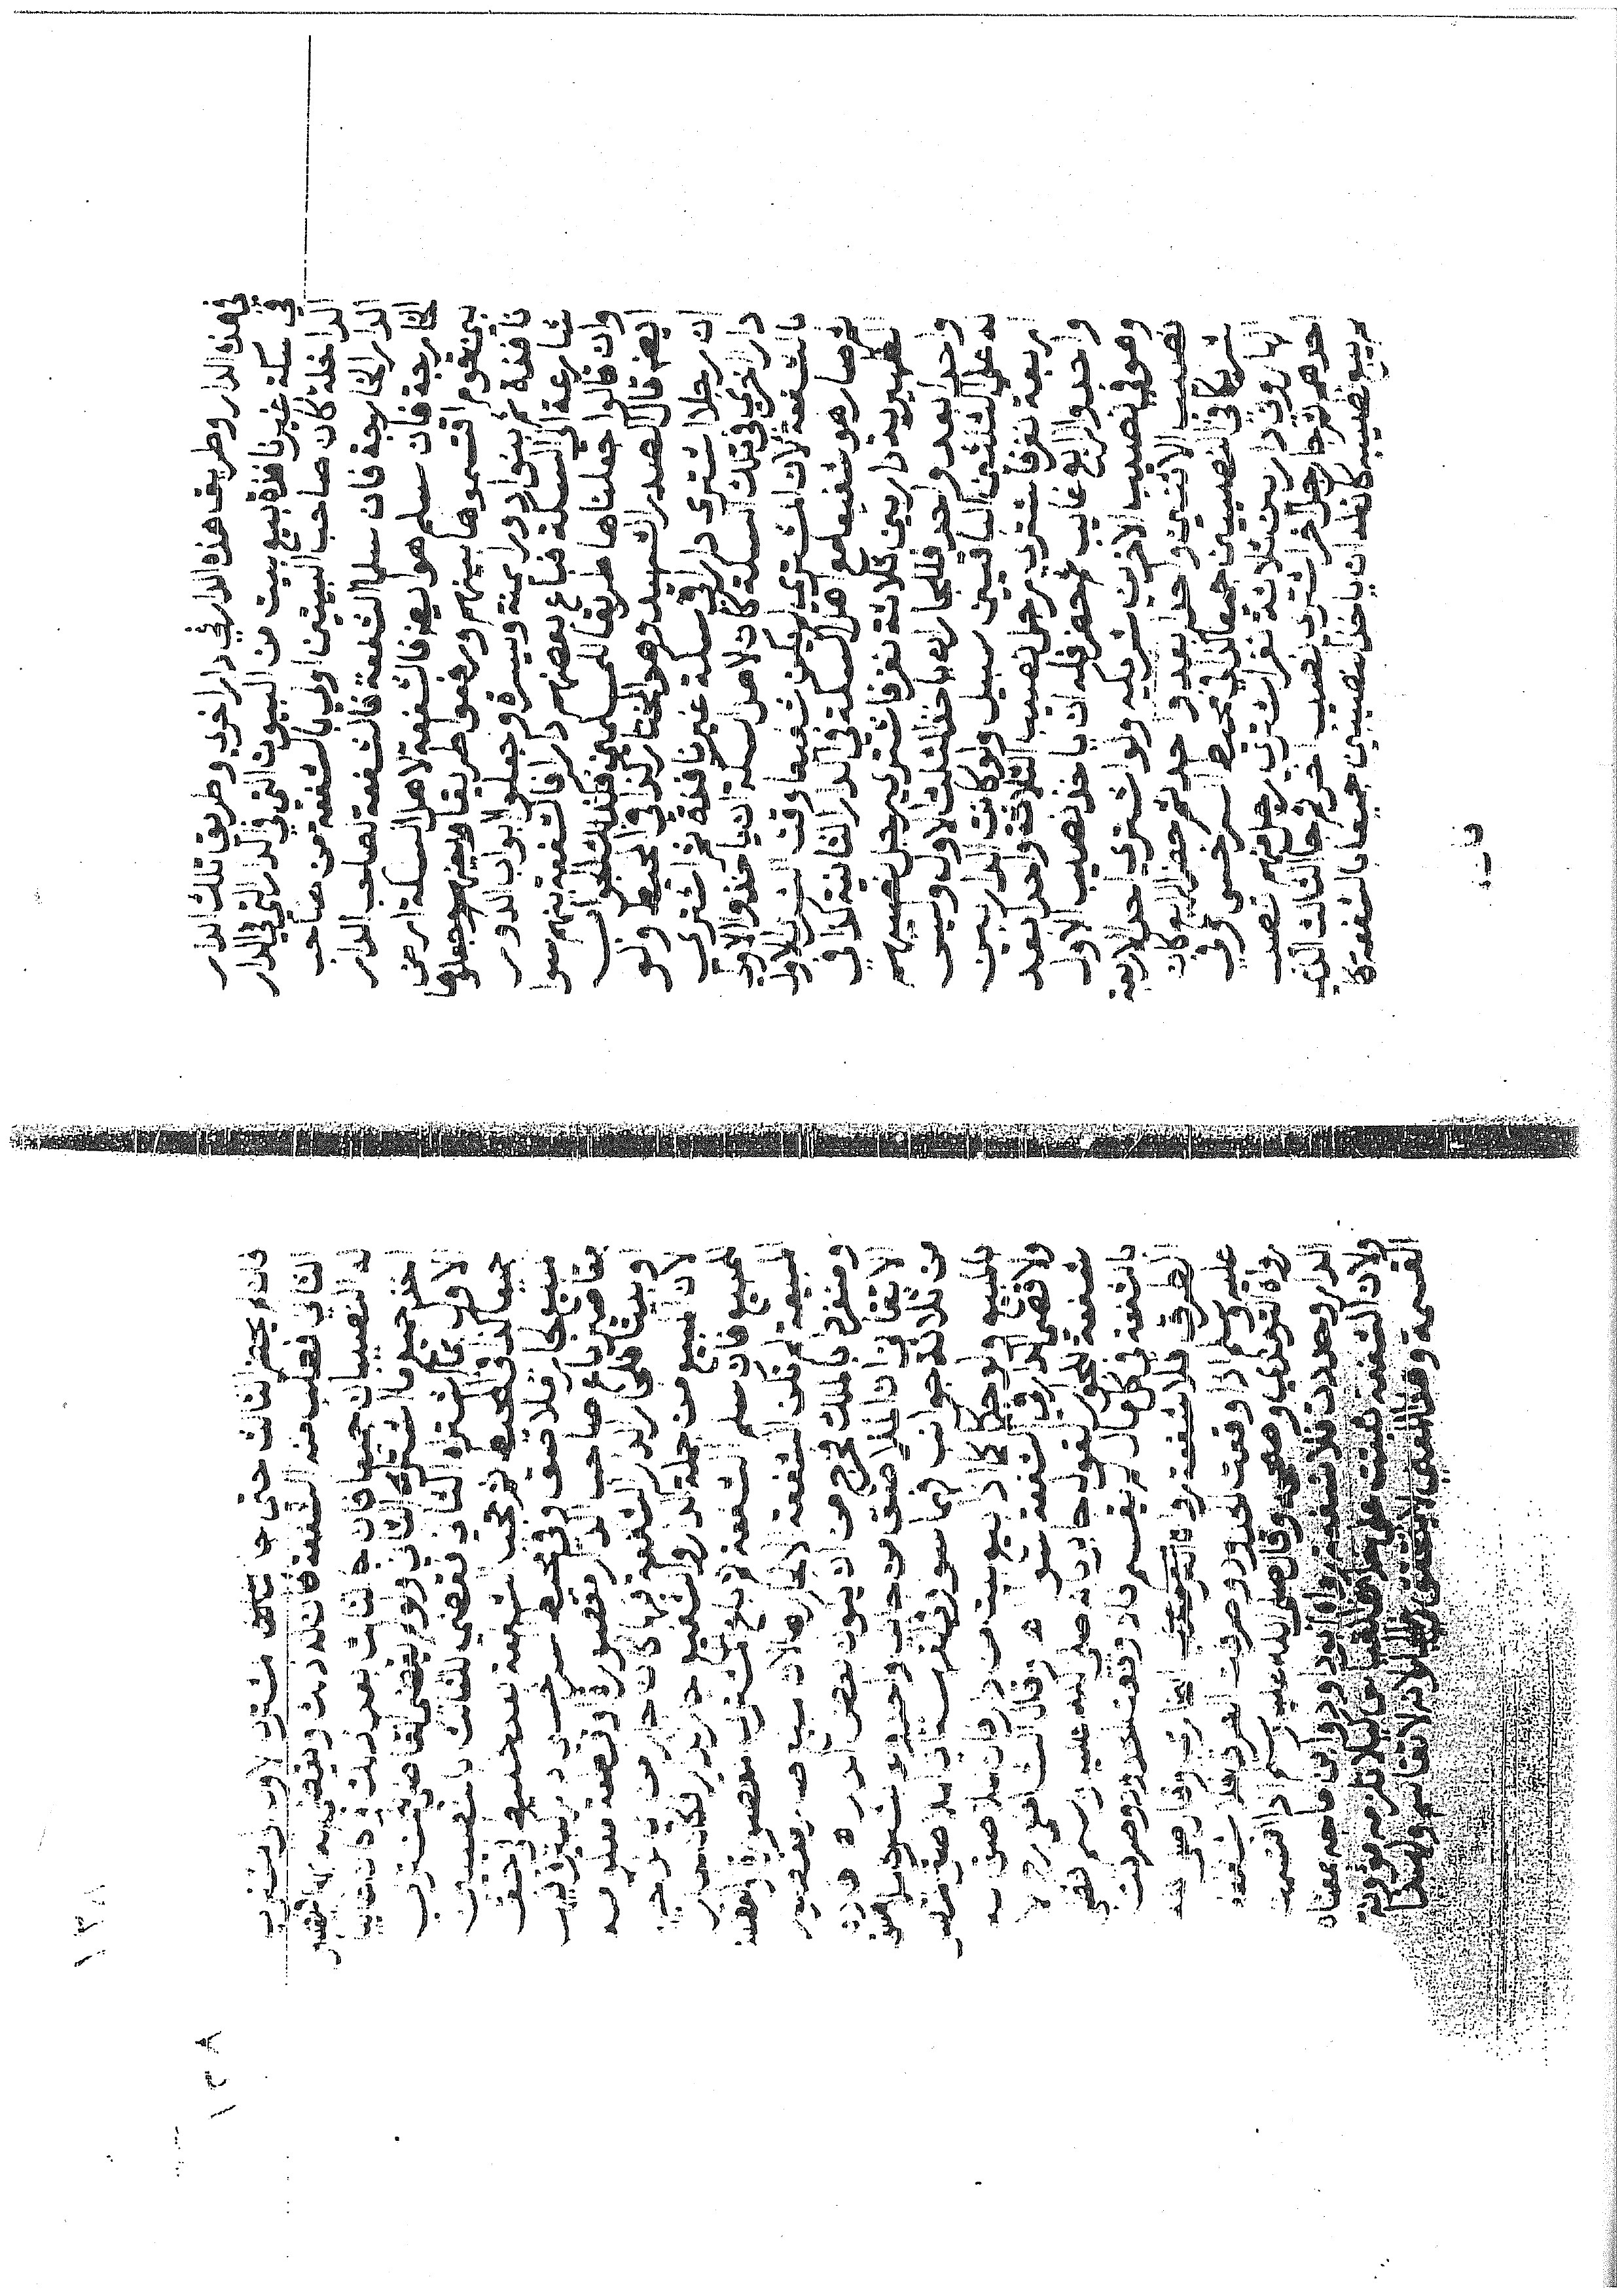 في هذه الدار وطريق هذه الدار في دار اخرى وطريق تلك الدار
في سكة غير نافذة بيع بيت من البيوت التي في الدار التي في الدار
الداخلة كان صاحب البيتين اولى بالشفعة من صاحب
الدار الخارجة فان سلم الشفعة فالشفعة لصاحب الدار
الخارجة فان سلم هو ايضا فالشفعة لاهل السكة ارض
بين قوم اقتسموها بينهم ورفعوا طريقا بينهم وجعلوها
نافذة ثم بنوا دورا يمنة ويسرة وجعلوا ابواب الدور
شارعة الى السكة فباع بعضهم دارا فالشفعة بينهم سوا
وان قالوا جعلناها طريقا للمسلمين فكذلك الجواب
ايضا قال الصدر الشهيد وهو المختار كذا في المحيط ولو
ان رجلا اشترى دارا في سكة غير نافذة ثم اشترى
دارا اخرى في تلك السكة كان لاهل السكة ان ياخذوا الاولى
بالشفعة لان المشتري لم يكن شفيعا وقت الشراء الاول
ثم صار هو شفيعا مع اهل السكة في الدار الثانية كذا في
الظهيرية دار بين ثلاثة نفر فاشترى رجل نصيبهم
واحدا بعد واحد فللجار ان ياخذ الثلث الاول وليس
له على الثلثين الباقيين سبيل ولو كانت الدار بين
اربعة نفر فاشترى رجل نصيب الثلاثة واحدا بعد
واحد والرابع غايب ثم حضر فله ان ياخذ نصيب الاول
وهو في نصيب الاخرين شريكه ولو اشترى احد الاربعة
نصيب الاثنين واحدا بعد واحد ثم حضر الرابع كان
شريكا في النصيبين جميعا كذا في محيط السرخسي وفي
الهاروني دار بين ثلاثة نفر اشترى رجل منهم نصيب
احدهم ثم جا رجل اخر اشترى نصيب اخر ثم جا الثالث الذي
لم يبع نصيبه كان له ان ياخذ النصيبين جميعا بالشفعة
فان لم
١٣٨
١٣٨
فان لم يحضر الثالث حتى جا المشتري الاول الى المشتري
الثاني فطلب منه الشفعة كان له ذلك ويقضى له
له النصيبان جميعا فان جا الثالث بعد ذلك
اخذ جميع ما اشتراه الثاني ولو لم يقض القاضي للمشتري
الاول بما اشتراه الثاني يقضي للثالث بالنصيبين
جميعا كذا في المحيط ثم تجب الشفعة بعد خليط في حق
المبيع لجار ملاصق وفي محيط السرخسي
مقاصير باع صاحب الدار مقصورة او قطعة معلومة
او بيتا فلجار الدار الشفعة فيها كان جارا من
لان المبيع من جملة الدار والشفيع جار الدار فكان جار
المبيع فان سلم الشفعة ثم باع المشتري المقصورة
المبيعة لم تكن الشفعة الا لجارها لان
ومنفردة بالملك فخرج من ان يكون بعض الدار ه قال
الاتقاني ان الملاصق من جانب واحد ولو بشبر كالملاصق
من ثلاثة جوانب فهما سوا
للمبيع ولو حكما كما اذا بيع بيت من دار فان الملاصق له
ولاقصى الدار في الشفعة سوا ه وقال الشافعي رحمه
لا شفعة للجوار لقول جابر انه صلى الله عليه وسلم قضى
بالشفعة في كل مال لم يقسم فاذا وقعت الحدود وصرفت
الطرق فلا شفعة رواه البخاري وقال صلى الله
عليه وسلم اذا وقعت الحدود وصرفت الطرق فلا شفعة
رواه الترمذي وصححه وقال صلى الله عليه وسلم اذا قسمت
الدار وحددت فلا شفعة رواه ابو داود وابن ماجه بمعناه
ولان الشفعة ثبتت على خلاف القياس كيلا تلزمه مؤونة
القسمة وهذا المعنى لا يتحقق في الجار لانه لا يقاسم